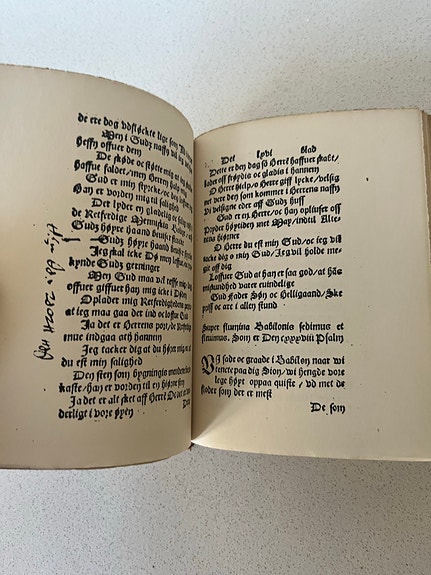 de ere dog vdsløckte lige som
Men i Gudz naffn vil ieg
heffn offuer dem
De støde oc støtte mig at
haffue faldet/ men Herren halp
Gud er min styrcke/oc
Han er vorden mig til salighed
Det lyder en gladelig oc
de Retferdige
Gudz høyre haand
Gudz høyre haand
Jeg skal icke Dø men leffue oc
kynde Gudz gerninger
Men Gud maa vel
offuer giffuet han mig icke i Døden
Oplader mig Retferdigheds
at ieg maa gaa der ind oc loffue Gud
Ja det er Herrens port/de Retferdige
mue indgaa ath hannem
Jeg tacker dig at du hører mig
du est min salighed
Den sten som bygnings
kaste/han er vorden til en hiørne sten
Ja det er alt sket aff Herre
derligt i vore øyen
Det lxvi blad
Dette er den dag som Herre haffuer skabt/
lader oss frøyde oc gladis i hannem
O Herre hielp/o Herre giff lycke/velsig
net vere den som kommer i Herrens naffn
Vi velsigne eder aff Gudz huss
Gud er en Herre/oc han oplyser oss
Pryder høytiden met May/indtil Alte
rens hiørner
O Herre du est min Gud/oc ieg vil
tacke dig o min Gud/Jeg vil holde me
get aff dig
Loffuer Gud at han er saa god/at hans
miskundhed varer euindelige
Gud Fader Søn oc Helligaand/Ske
priss oc ære i allen stund
Super flumina Babilonis sedimus et
fleuimus. Som er Den cxxxvii Psalm
VI sade oc græde i Babilon naar wi
tenckte paa dig Sion/wi hengde vore
lege høyt oppaa quiste/vd met de
stoder som der er mest
De som